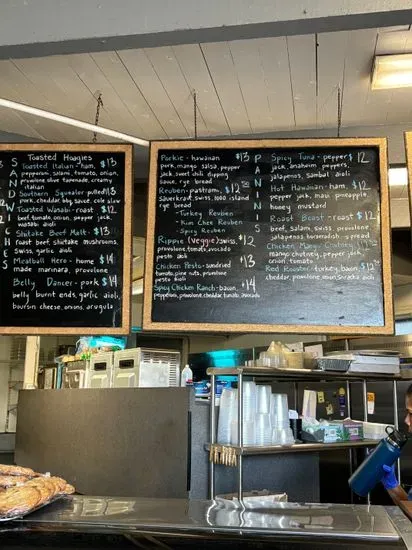 SANDWICHES
Toasted Hoagies
Toasted Italian - ham, $13
pepperoni, salami, tomato, onion,
provolone, olive tapenade, creamy
italian
Southern Squealer - pulled $13
pork, cheddar, bbq sauce, cole slaw
Toasted Wasabi - roast $12
beef, tomato, onion, pepper jack
wasabi aioli
Shitake Beef Melt - $13
roast beef, shitake mushrooms,
swiss, garlic aioli
Meatball Hero - home $14
made marinara, provolone
Belly Dancer - pork $14
belly burnt ends, garlic aioli,
boursin cheese, onions, arugula
PANINIS
Porkie - hawaiian $13
pork, mango salsa, pepper
jack, sweet chili dipping
sauce, rye bread
Reuben - pastrami, $12.50
sauerkraut, swiss, 1000 island
rye bread
- Turkey Reuben
- Kim Chee Reuben
- Spicy Reuben
Rippie (Veggie) swiss, $12
provolone, tomato, avocado
pesto aioli
Chicken Pesto - sundried $13
tomato, pine nuts, provolone
pesto aioli
Spicy Chicken Ranch - bacon, $14
pepperoni, provolone, cheddar, tomato, avocado
Spicy Tuna - pepper $12
jack, anaheim peppers,
jalapenos, sambal aioli
Hot Hawaiian - ham, $12
pepper jack, pineapple
honey mustard
Roast Beast - roast $12
beef, salami, swiss, provolone
jalapenos, horseradish spread
Chicken Mango Chutney $12
mango chutney, pepper jack
onion, tomato
Red Rooster - turkey, bacon, $12.50
cheddar, tomato, onion, Sriracha aioli